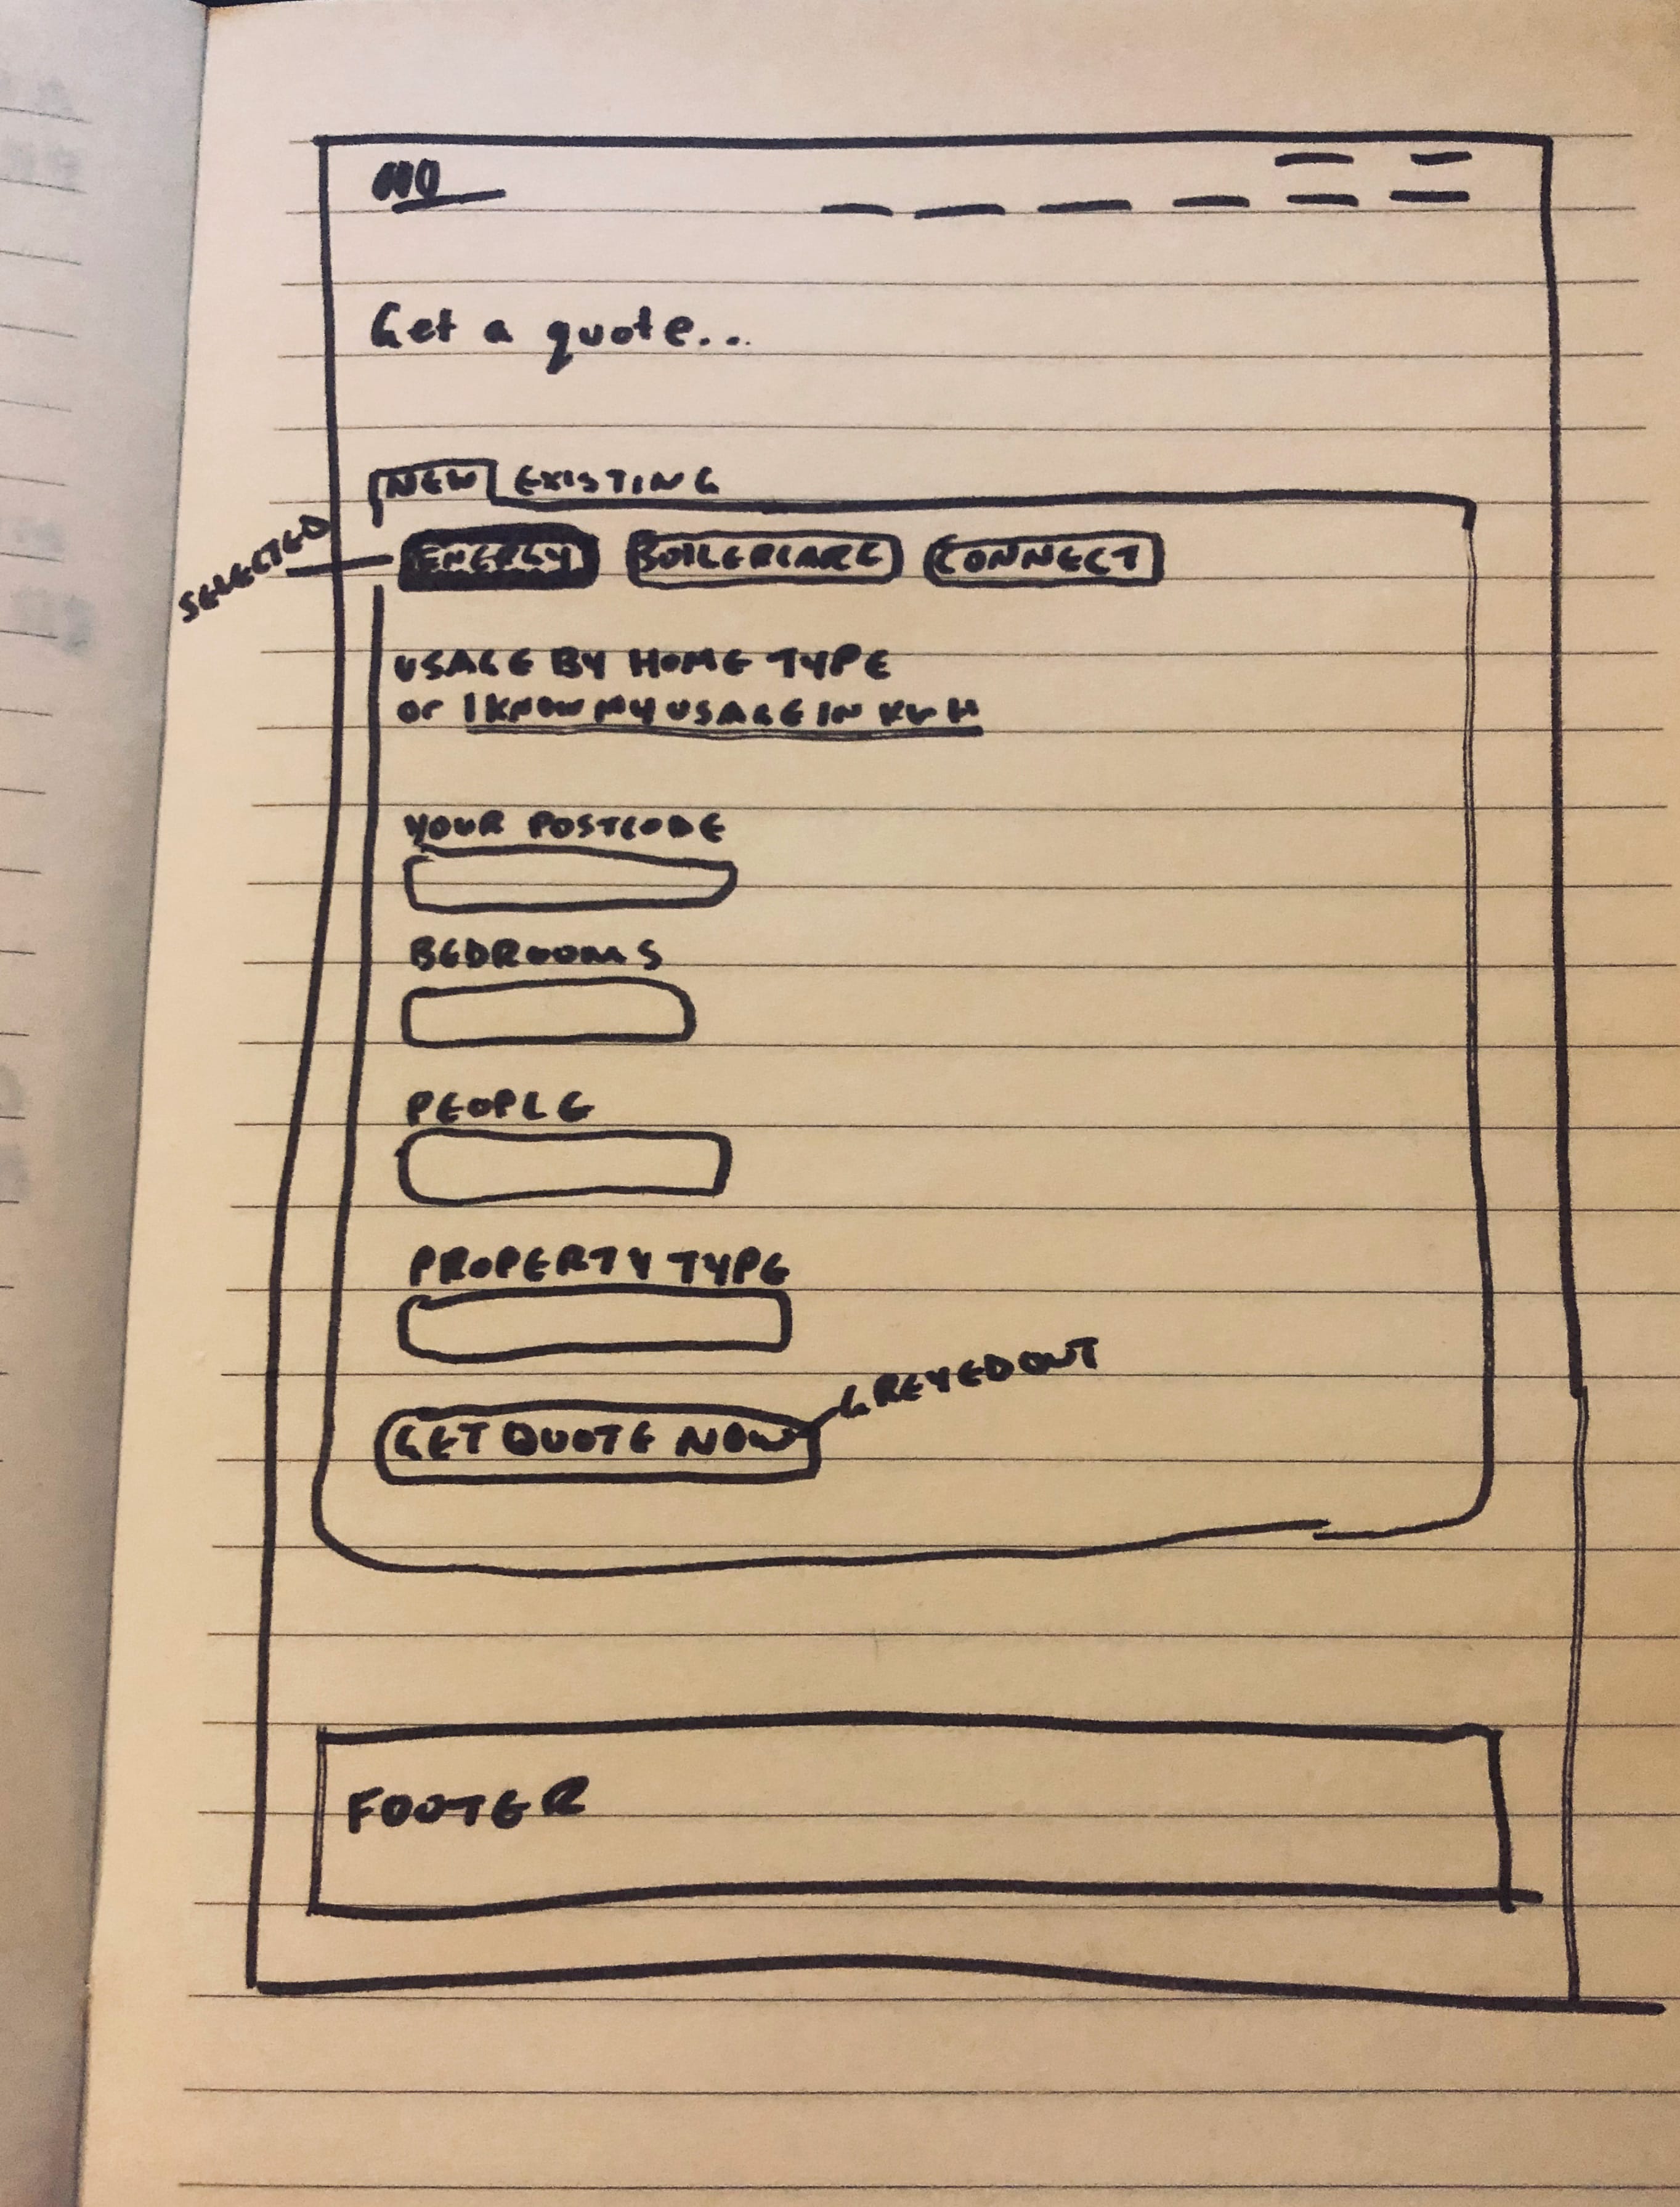 Get a quote...
NEW EXISTING
SELECTED
ENERGY BOILERCARE CONNECT
USAGE BY HOME TYPE
or I KNOW MY USAGE IN KWH
YOUR POSTCODE
BEDROOMS
PEOPLE
PROPERTY TYPE
GREYED OUT
GET QUOTE NOW
FOOTER